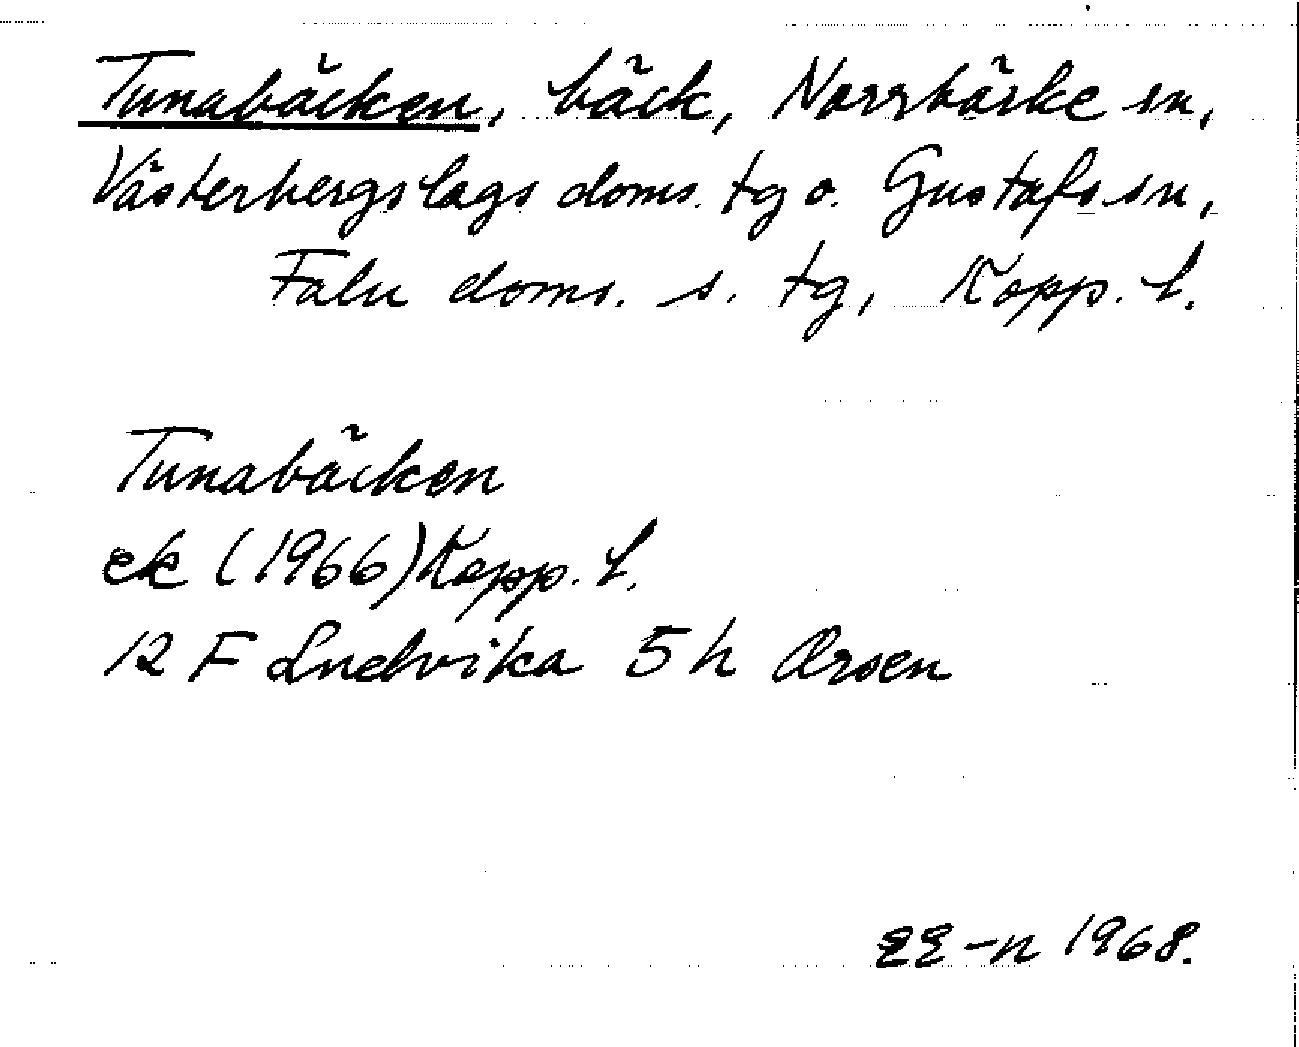 Tunabäcken, bäck, Norrbärke sn,
Västerbergslags doms. tg o. Gustafs sn,
Falu doms. s. tg, Kopp. l.
Tunabäcken
ek (1966) Kopp. l.
12 F Ludvika 5 h Orsen
EE-n 1968.